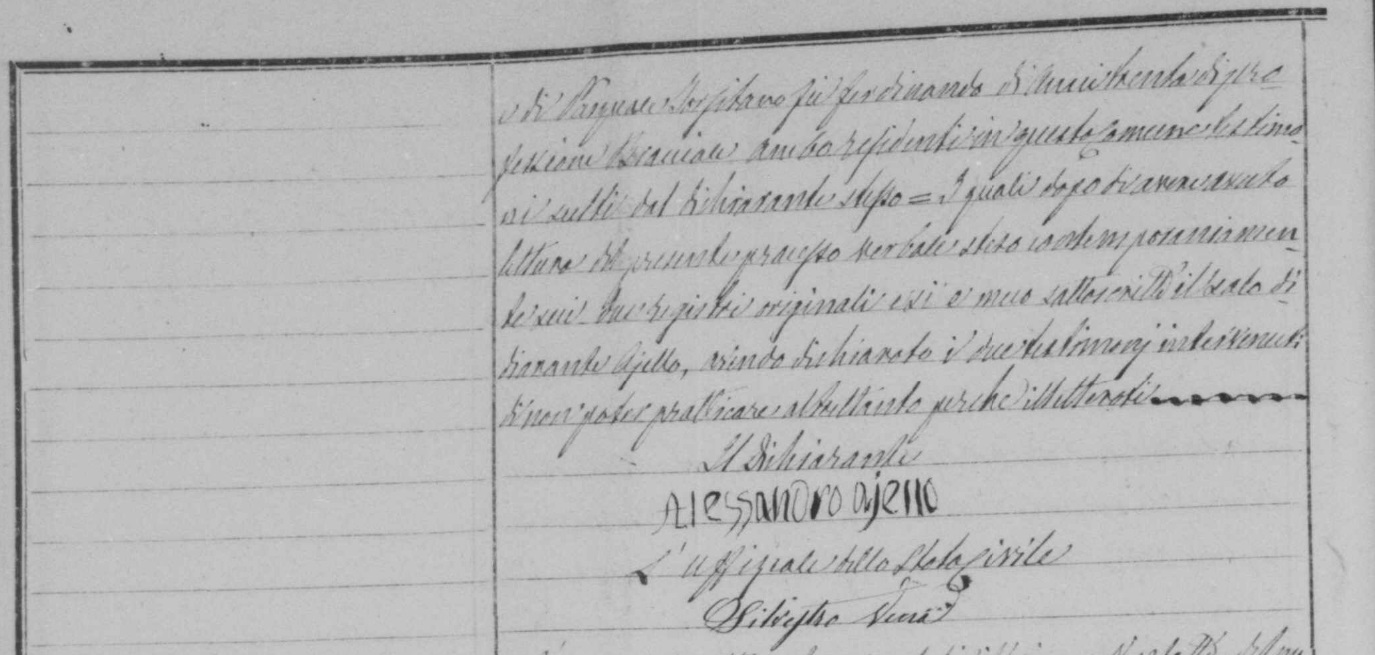 e di Pasquale fu Ferdinando di anni trenta di pro-
fessione Bracciale ambo residenti in questo Comune testimo-
ni scelti dal dichiarante stesso = I quali dopo di avere avuto
lettura del presente processo verbale steso contemporaniamen-
te sui due registri originali essi e meco sottoscritti il solo di-
diarante Ajello, avendo dichiarato i due testimonj intervenuti
di non poter pratticare altrettanto perche illetterati
Il dichiarante
Alessandro ajello
L'uffiziale dello Stato Civile
Silvestro